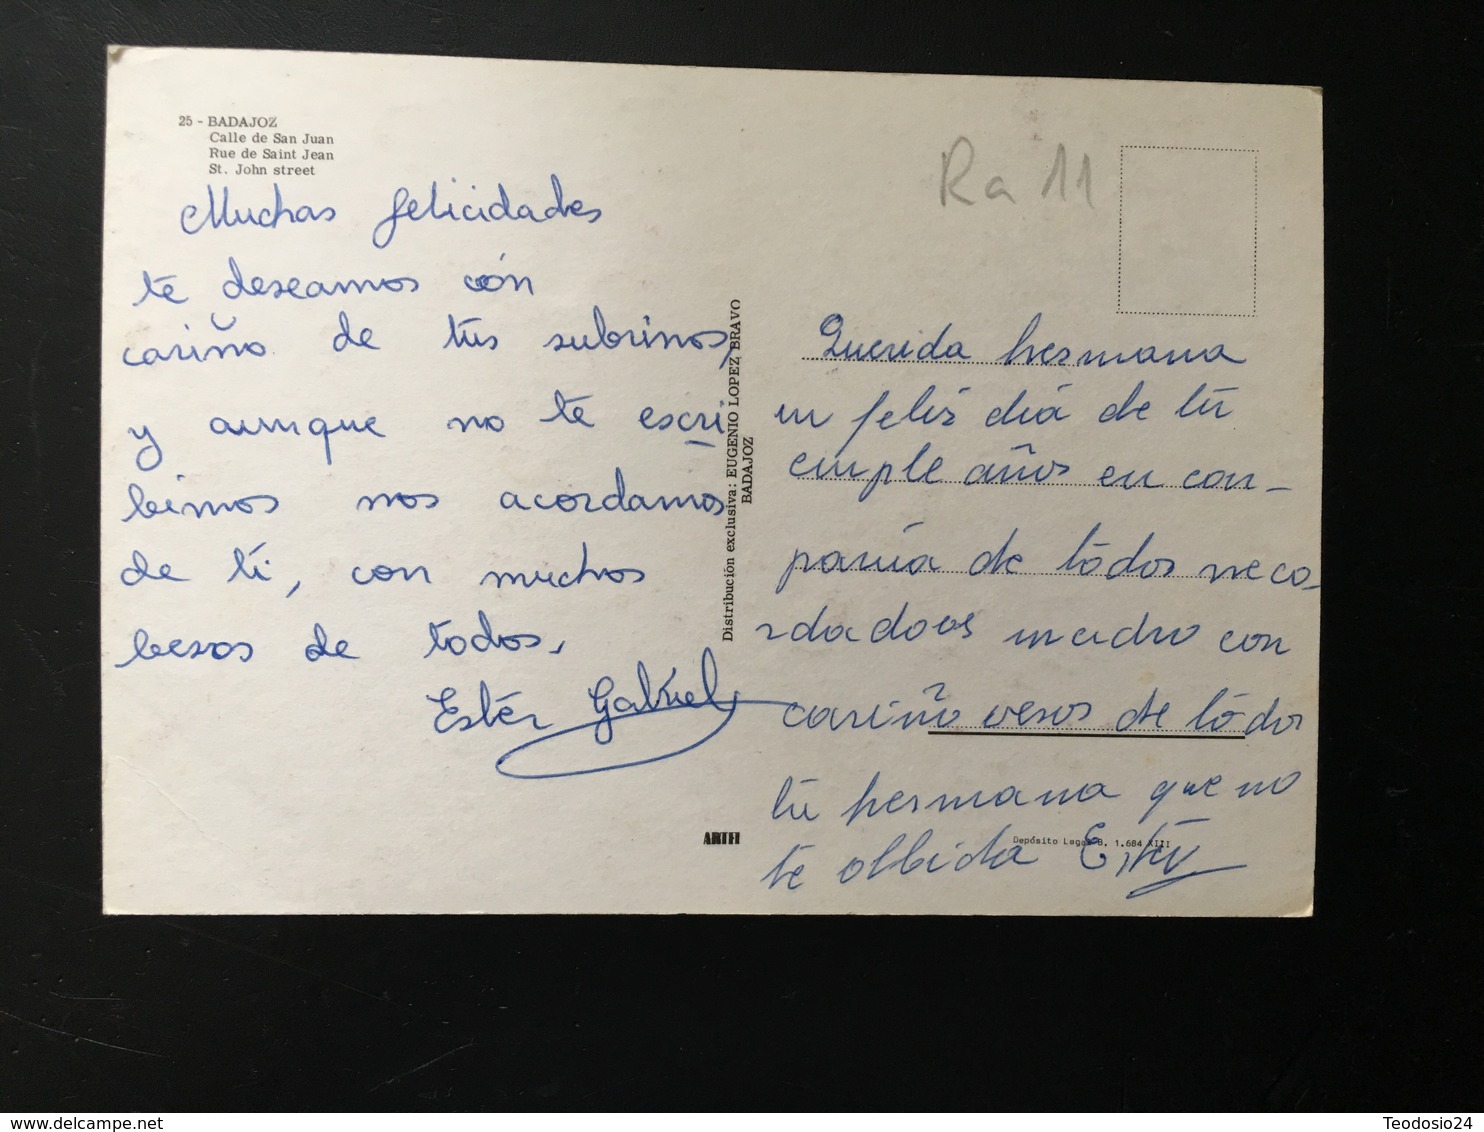 25 - BADAJOZ
Calle de San Juan
Rue de Saint Jean
St. John street
Muchas felicidades
te deseamos cón
cariño de tus subrinos,
y aunque no te escri
bimos nos acordamos
de ti, con muchos
besos de todos,
Ester Gabriel
Distribución exclusiva: EUGENIO LOPEZ BRAVO
BADAJOZ
Ra 11
Querida hermana
un feliz diá de tú
cunple años en con-
pañia de tódos reco-
rdadoos madre con
cariño vesos de tódos
tú hermana que no
te olbida Ester
ARTFI
Depósito Legal B. 1.684 XIII
Teodosio24
delcampe.net